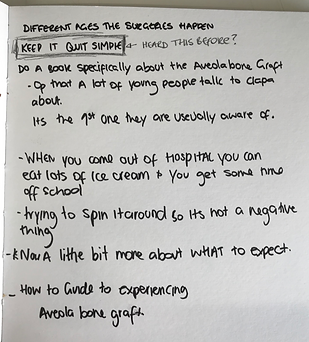 DIFFERENT AGES THE SURGERIES HAPPEN
KEEP IT QUIT SIMPLE ← HEARD THIS BEFORE?
DO A BOOK Specifically about the Aveola bone Graft
- Op that A lot of young people talk to clapa
about.
Its the 1st one they are usually aware of.
- WHEN you come out of HOSPITAL you can
eat lots of Ice cream & You get some time
off school
- trying to spin it around so its not a negative
thing
- kNow A little bit more about WHAT to expect.
- How to Guide to experiencing
Aveola bone graft.